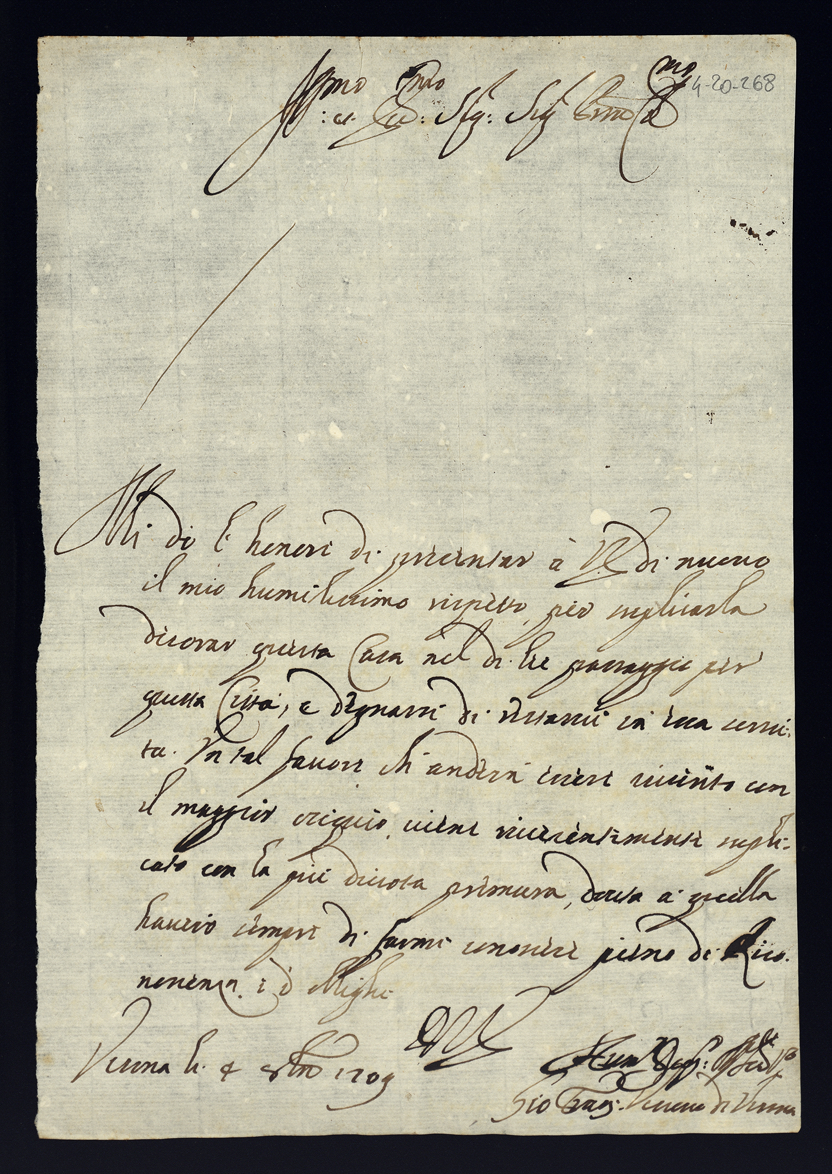 Ill.mo et Ecc.mo Sig.r Sig.r
4-20-268
Mi do l'honore di presentar à V.E. di nuovo
il mio humilissimo rispetto, per suplicarla
decorar questa Casa nel di lei passaggio per
questa Città, e degnarsi di restarvi in essa servi-
ta. Un tal favore ch'anderà essere ricevuto con
il maggior ossequio, viene riverentemente supli-
cato con la più divota premura, dovendo
haverò sempre di farmi conoscere pieno di Rico-
noscenza, e d'oblighi
Verona li 4 8bre 1709
D.V.E.
Hum.o Dev.o
Gio Fran.o Vescovo di Verona